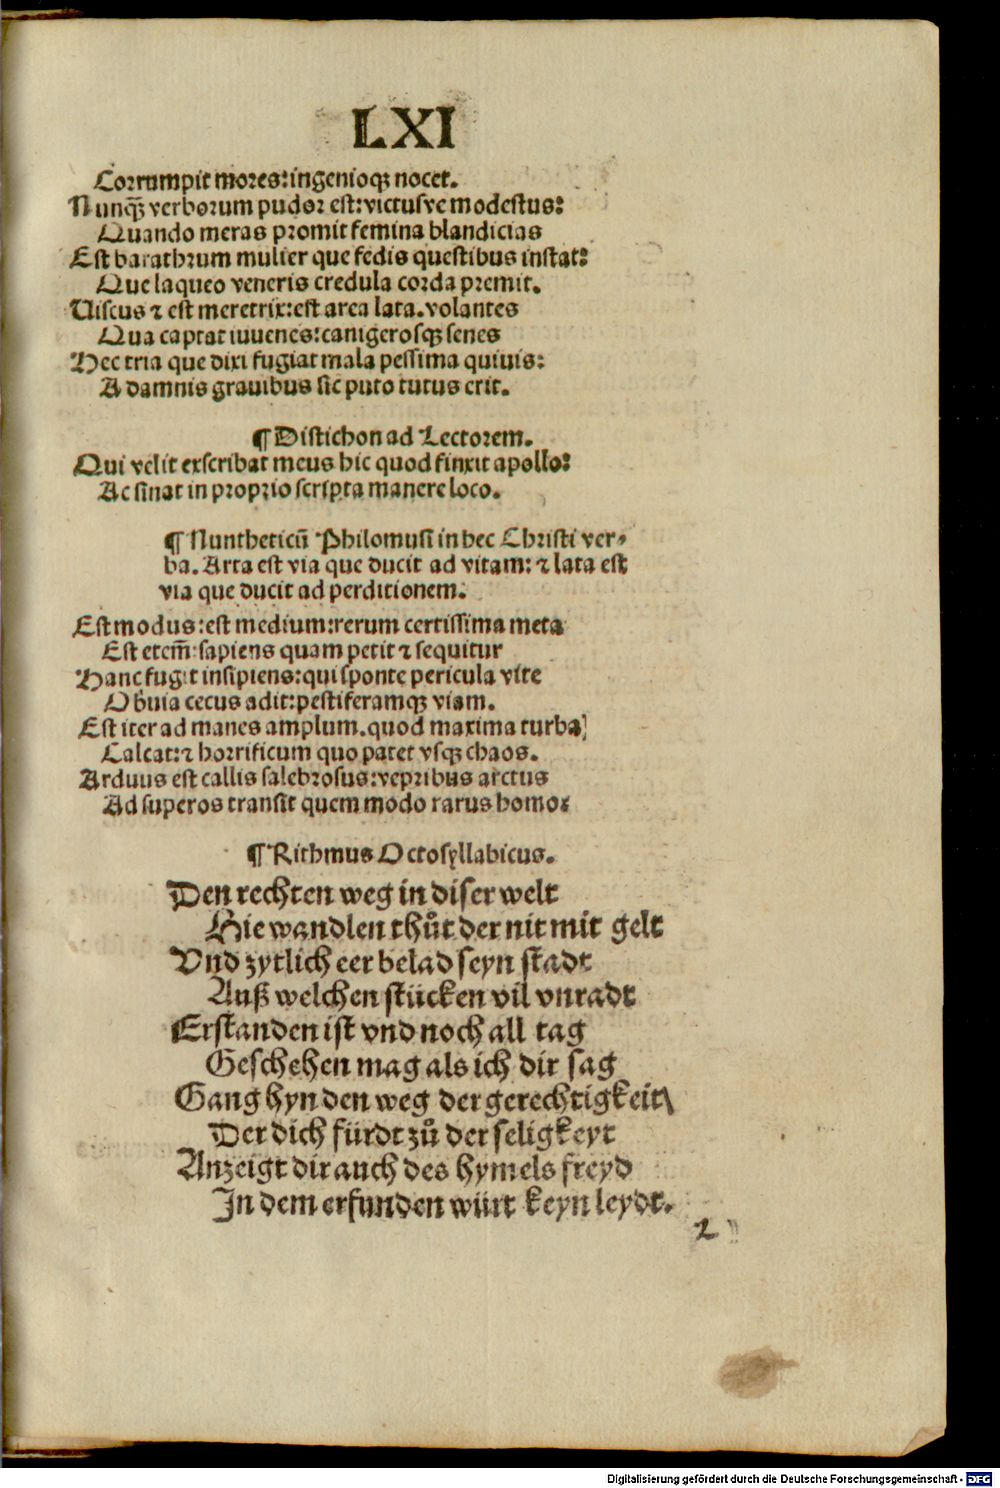 LXI
Corrumpit mores: ingenioqꝫ nocet.
Nunqᷓ verborum pudor est: victusve modestus:
Quando meras promit femina blandicias
Est barathrum mulier que fedis questibus instat:
Que laqueo veneris credula corda premit.
Viscus ⁊ est meretrix: est area lata. volantes
Qua captat iuvenes: canigerosqꝫ senes
Hec tria que dixi fugiat mala pessima quivis:
A damnis gravibus sic puto tutus erit.
¶ Distichon ad Lectorem.
Qui velit exscribat meus hic quod finxit apollo:
Ac sinat in proprio scripta manere loco.
¶ Nuntheticū Philomusi in hec Christi ver⸗
ba. Arta est via que ducit ad vitam: ⁊ lata est
via que ducit ad perditionem.
Est modus: est medium: rerum certissima meta
Est etem̄: sapiens quam petit ⁊ sequitur
Hanc fugit insipiens: qui sponte pericula vite
Obuia cecus adit: pestiferamqꝫ viam.
Est iter ad manes amplum. quod maxima turba
Calcat: ⁊ horrificum quo patet vsqꝫ chaos.
Arduus est callis salebrosus: vepribus arctus
Ad superos transit quem modo rarus homo:
¶ Rithmus Octosyllabicus.
Den rechten weg in diser welt
Hie wandlen thůt der nit mit gelt
Vnd zytlich eer belad seyn stadt
Auß welchen stücken vil vnradt
Erstanden ist vnd noch all tag
Geschehen mag als ich dir sag
Gang hyn den weg der gerechtigkeit\
Der dich fürdt zů der seligkeyt
Anzeigt dir auch des hymels freyd
In dem erfunden würt keyn leydt.
L
Digitalisierung gefördert durch die Deutsche Forschungsgemeinschaft - DFG